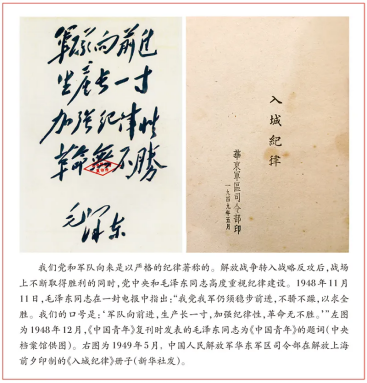 军队向前进
生产长一寸
加强纪律性
革命無不勝
毛泽东
入城纪律
華东軍区司令部印
一九四九年五月
我们党和军队向来是以严格的纪律著称的。解放战争转入战略反攻后，战场
上不断取得胜利的同时，党中央和毛泽东同志高度重视纪律建设。1948年11月
11日，毛泽东同志在一封电报中指出：“我党我军仍须稳步前进，不骄不躁，以求全
胜。我们的口号是：‘军队向前进，生产长一寸，加强纪律性，革命无不胜。’”左图
为1948年12月，《中国青年》复刊时发表的毛泽东同志为《中国青年》的题词（中央
档案馆供图）。右图为1949年5月，中国人民解放军华东军区司令部在解放上海
前夕印制的《入城纪律》册子（新华社发）。